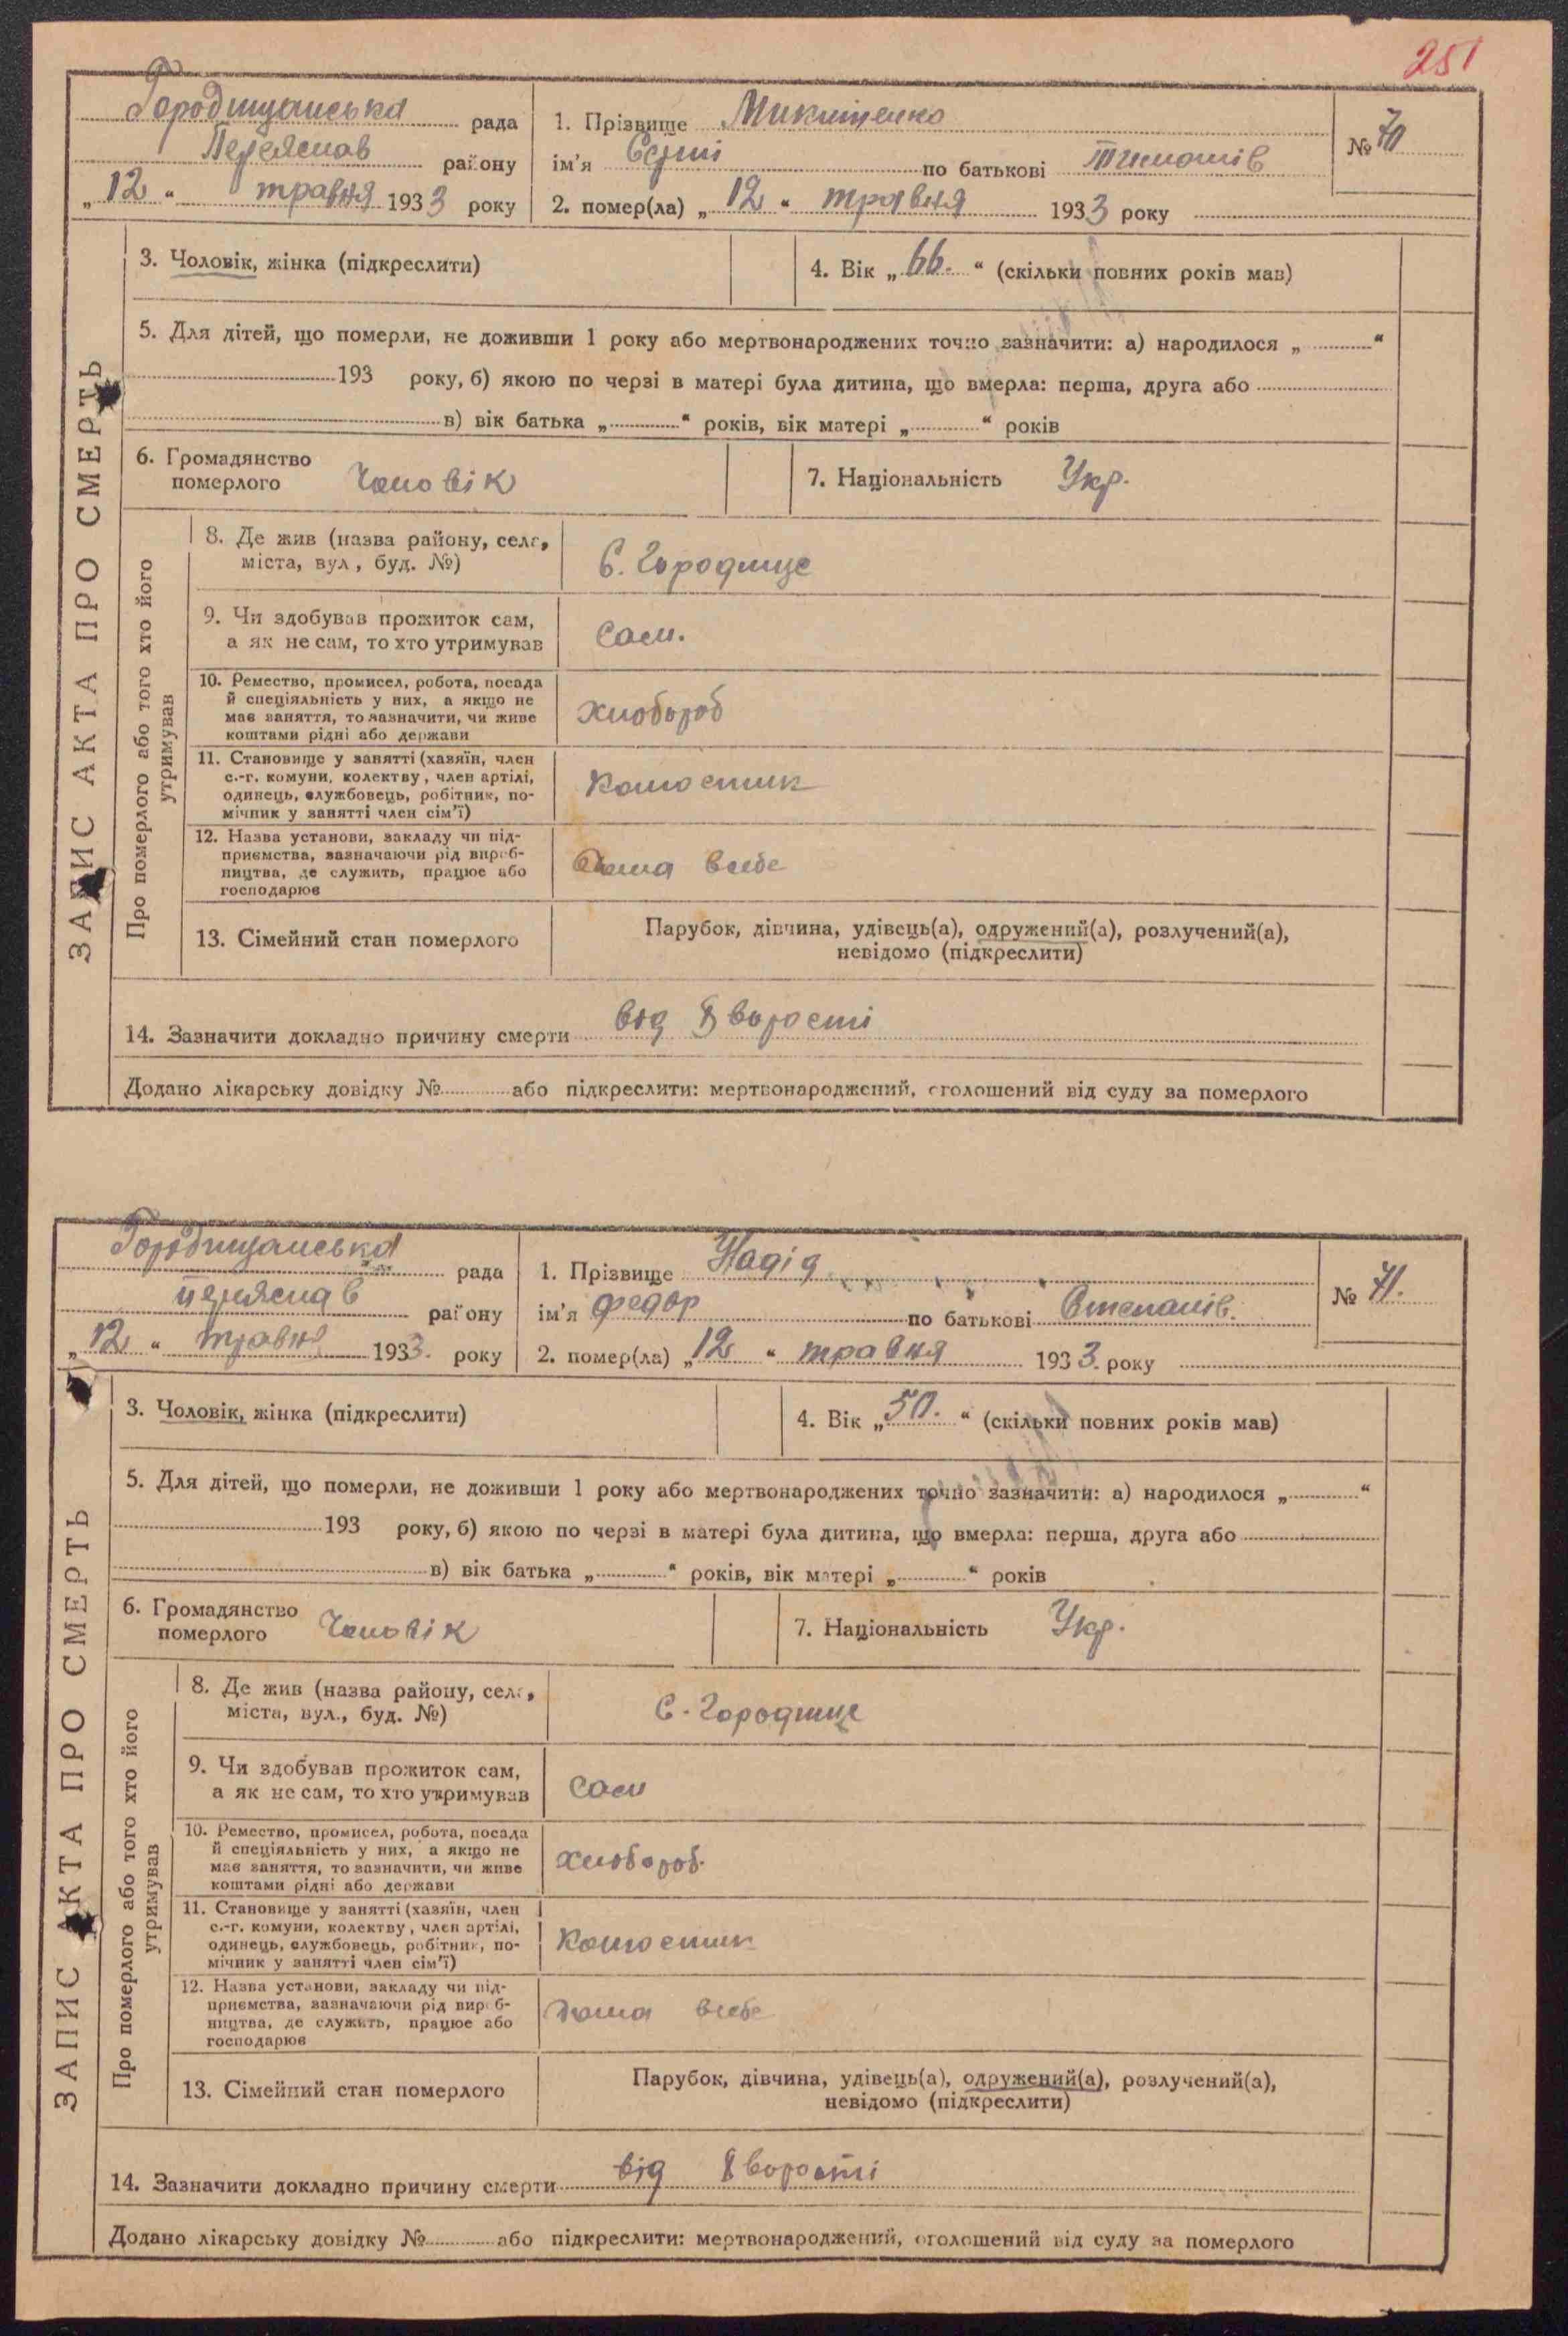 251
Городищанська рада
Переяслав району
„ 12 “ травня 1933 року
1. Прізвище Микитенко
ім’я по батькові
2. помер(ла) „ 12 “ травня 1933 року
№ 70
3. Чоловік, жінка (підкреслити)
4. Вік „ 66. “ (скільки повних років мав)
5. Для дітей, що померли, не доживши 1 року або мертвонароджених точно зазначити: а) народилося „ “
193 року, б) якою по черзі в матері була дитина, що вмерла: перша, друга або
в) вік батька „ “ років, вік матері „ “ років
6. Громадянство
померлого Чоловік
7. Національність Укр.
ЗАПИС АКТА ПРО СМЕРТЬ
Про померлого або того хто його
утримував
8. Де жив (назва району, села,
міста, вул, буд. №)
С. Городище
9. Чи здобував прожиток сам,
а як не сам, то хто утримував
Сам.
10. Ремество, промисел, робота, посада
й спеціяльність у них, а якщо не
має заняття, то зазначити, чи живе
коштами рідні або держави
Хлібороб
11. Становище у занятті (хазяїн, член
с.-г. комуни, колективу, член артілі,
одинець, службовець, робітник, по-
мічник у занятті член сім’ї)
12. Назва установи, закладу чи під-
приємства, зазначаючи рід вироб-
ництва, де служить, працює або
господарює
13. Сімейний стан померлого
Парубок, дівчина, удівець(а), одружений(а), розлучений(а),
невідомо (підкреслити)
14. Зазначити докладно причину смерти від Хворості
Додано лікарську довідку № або підкреслити: мертвонароджений, оголошений від суду за померлого
Городищанська рада
Переяслав району
„ 12 “ травня 1933. року
1. Прізвище
ім’я Федор по батькові Степанів.
2. помер(ла) „ 12 “ травня 1933. року
№ 71.
3. Чоловік, жінка (підкреслити)
4. Вік „ 50. “ (скільки повних років мав)
5. Для дітей, що померли, не доживши 1 року або мертвонароджених точно зазначити: а) народилося „ “
193 року, б) якою по черзі в матері була дитина, що вмерла: перша, друга або
в) вік батька „ “ років, вік матері „ “ років
6. Громадянство
померлого Чоловік
7. Національність Укр.
ЗАПИС АКТА ПРО СМЕРТЬ
Про померлого або того хто його
утримував
8. Де жив (назва району, села,
міста, вул., буд. №)
С. Городище
9. Чи здобував прожиток сам,
а як не сам, то хто утримував
Сам
10. Ремество, промисел, робота, посада
й спеціяльність у них, а якщо не
має заняття, то зазначити, чи живе
коштами рідні або держави
Хлібороб.
11. Становище у занятті (хазяїн, член
с.-г. комуни, колективу, член артілі,
одинець, службовець, робітник, по-
мічник у занятті член сім’ї)
12. Назва установи, закладу чи під-
приємства, зазначаючи рід вироб-
ництва, де служить, працює або
господарює
13. Сімейний стан померлого
Парубок, дівчина, удівець(а), одружений(а), розлучений(а),
невідомо (підкреслити)
14. Зазначити докладно причину смерти від Хворості
Додано лікарську довідку № або підкреслити: мертвонароджений, оголошений від суду за померлого